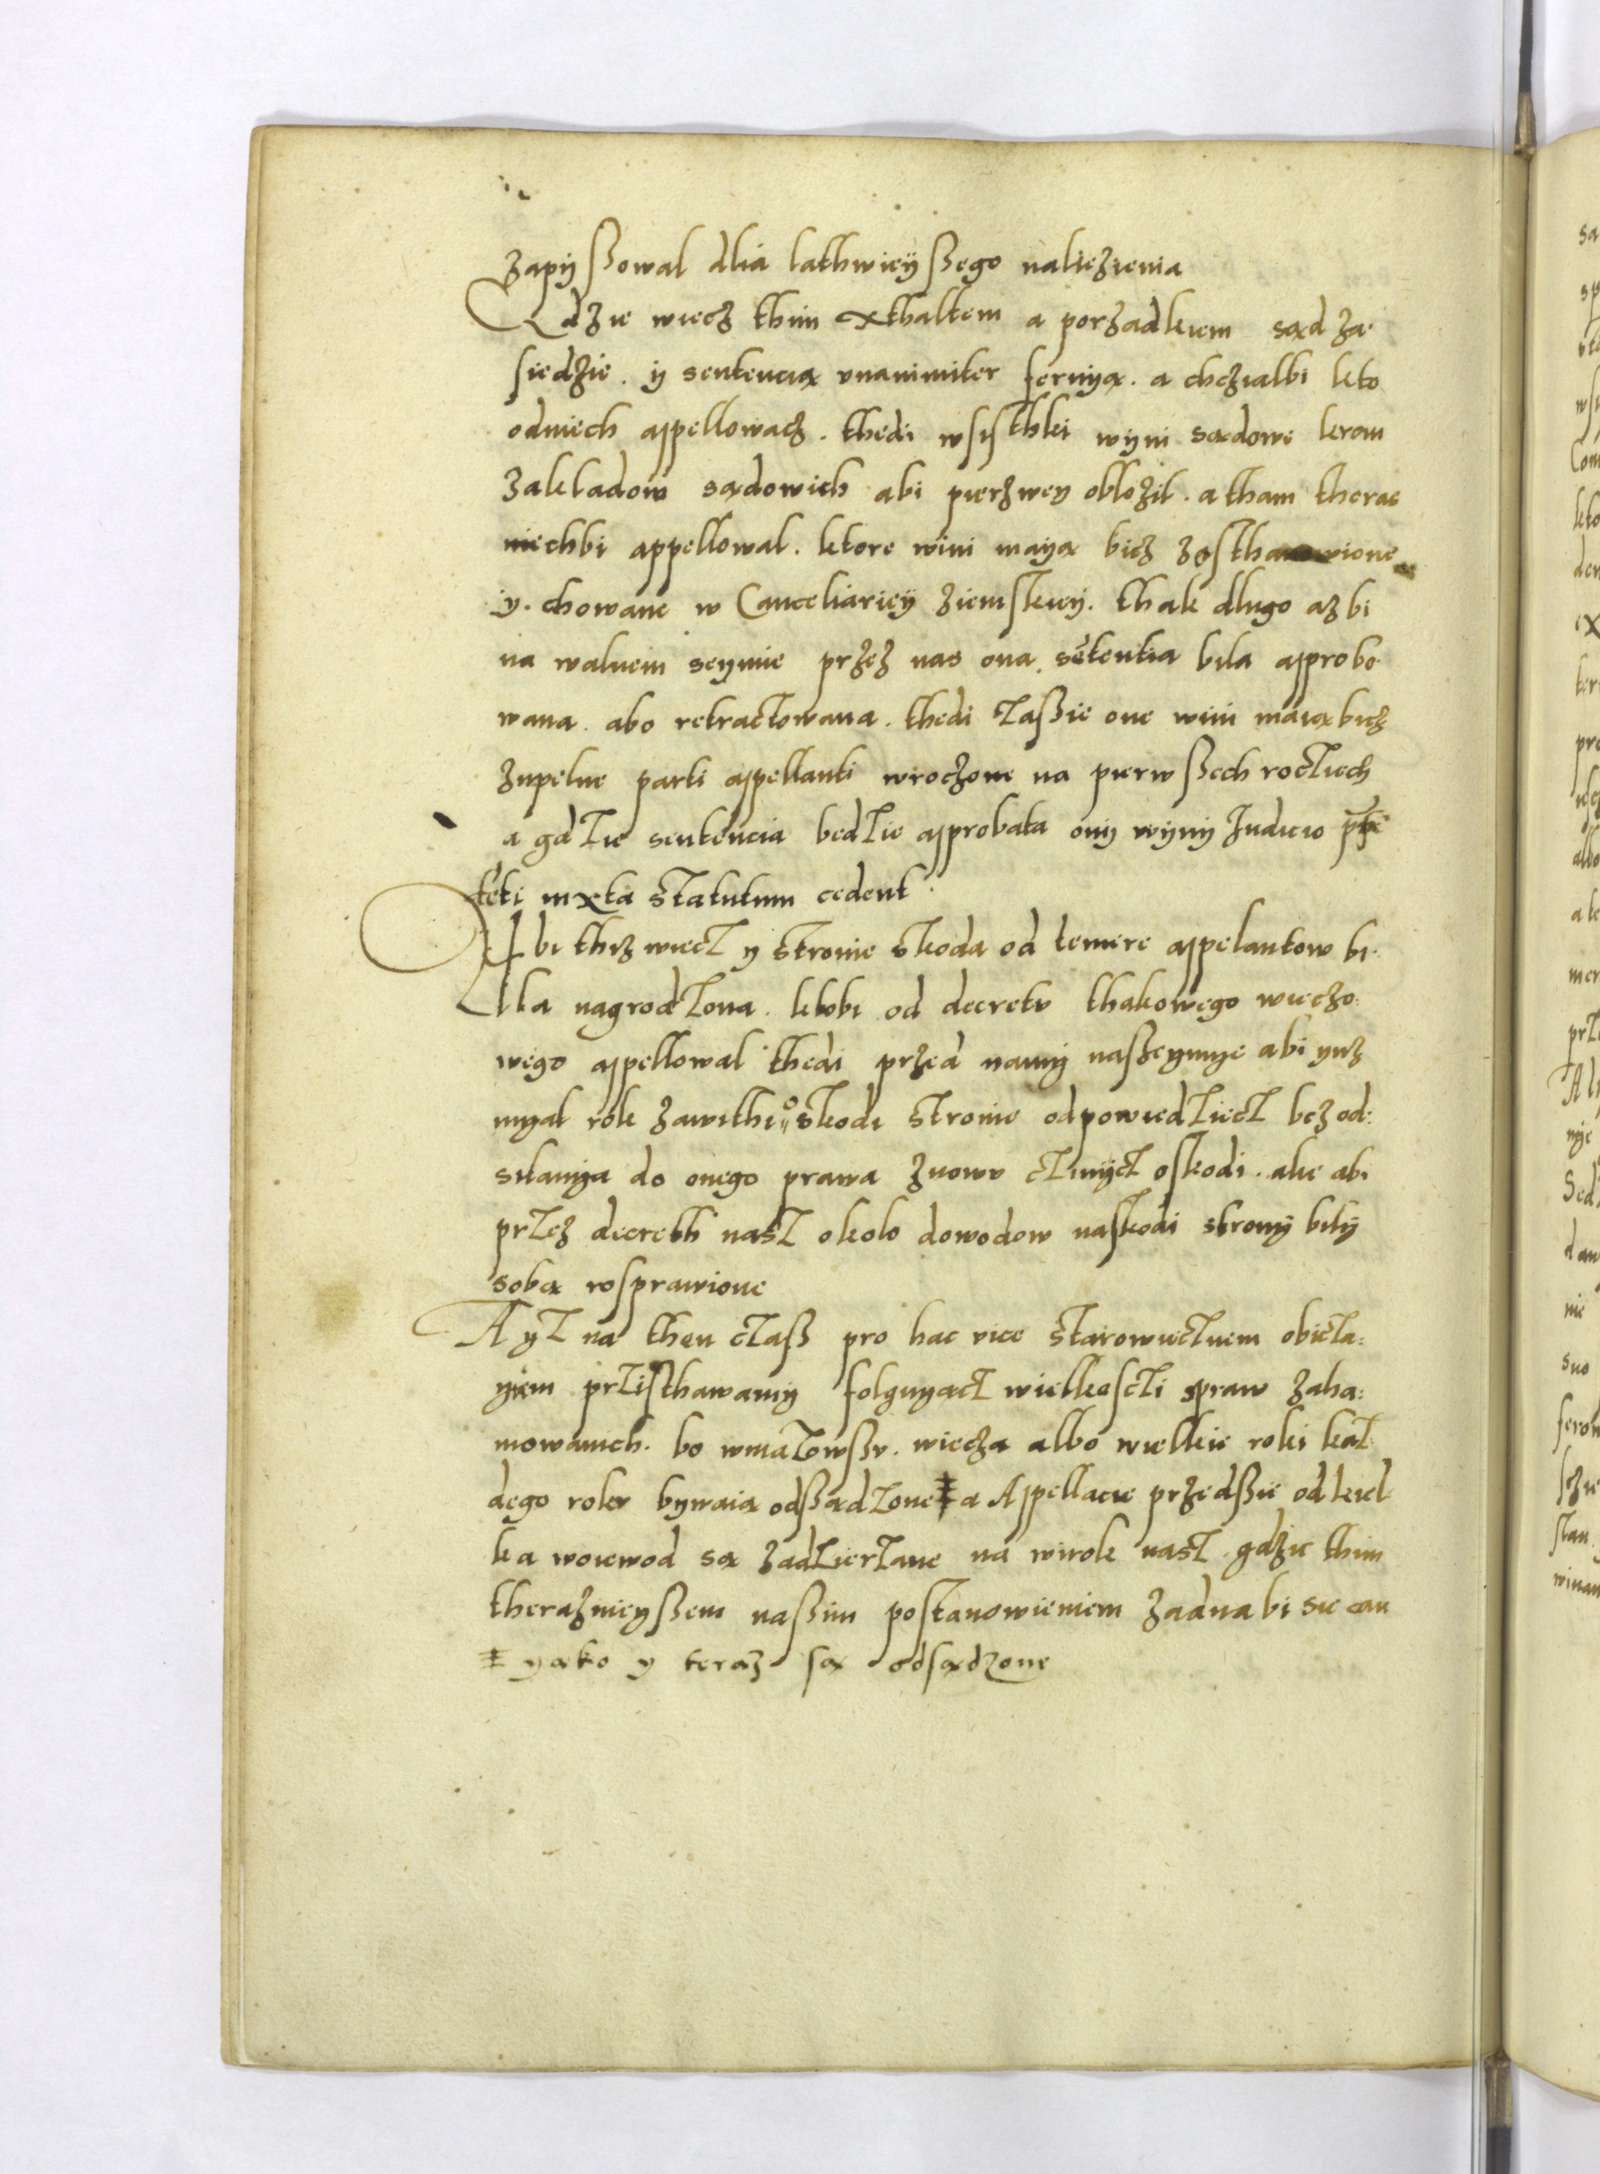 Zapÿssowal dlia lathwieÿssego naliezienia
Gdzie wiecz thim xthaltem a porzadkiem sąd za-
siedzie. ÿ sentencią vnanimiter feruyą. a chczialbi kto
odniech appellowacz. thedi wsisthki wÿni sądowe krom
zakladow sądowich abi pierzwey oblozil. a tham theras
niechbi appellowal. ktore wini mayą bicz zosthawione
ÿ. chowane w Canceliarieÿ ziemskieÿ. thak dlugo az bi
na walnem seÿmie przez nas ona sētentia bila approbo
wana. abo retractowana. thedi tassie one wini maią bicz
zupelne parti appellanti wroczone na pierwssech roctiech
a gdzie sentencia bedzie approbata onÿ wÿnÿ Judicio
teti iuxta statutum cedent.
Abi thiz wiecz y stronie skoda od temere appelantow bi-
lla nagrodzona. ktobi od decretv thakowego wieczo:
wego appellowal thedi przed namÿ nasseymye abi ynz
myal rok zawithi o skodi stronie odpowiedziecz bez od:
silanÿa do onego prawa znowv czinÿcz oskodi. ale abi
przez decreth nasz okolo dowodow naskodi stronÿ bilÿ
sobą rosprawione
A yz na then czass pro hac vice starowiecznem obicza:
yiem przisthawamÿ folguyącz wielkosczi spraw zaha:
mowanich. bo wmazowssv. wiecza albo wielkie roki kaz
dego rokv bywaią odssądzone ‡ a Appellacie przedssie od kiel
ka woiewod są zadzierzane na wirok nasz. gdzie thim
theraznieyssem nassim postanowieniem zadna bi sie cau
‡ yako y teraz są odsądzone